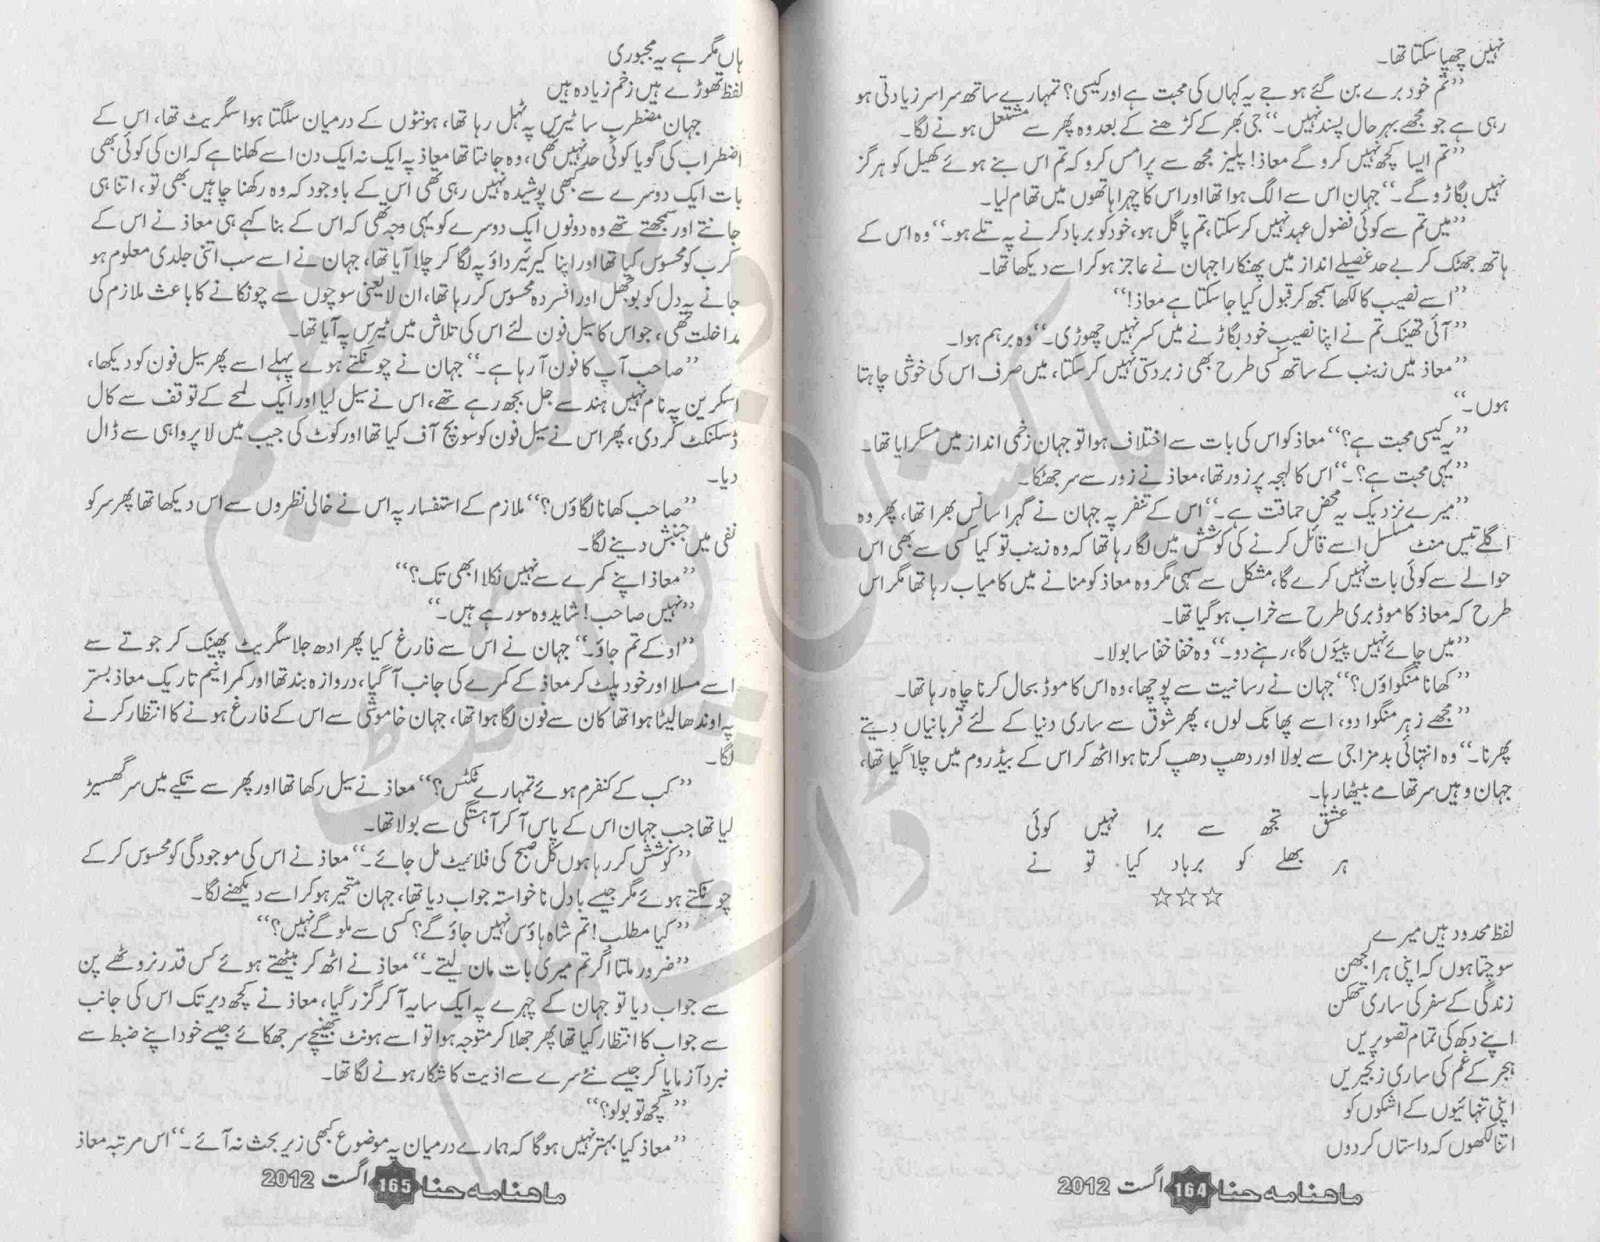 نہیں چھپا سکتا تھا۔
”تم خود برے بن گئے ہو جے یہ کہاں کی محبت ہے اور کیسی؟ تمہارے ساتھ سراسر زیادتی ہو
رہی ہے جو مجھے بہرحال پسند نہیں۔“ جی بھر کے کڑھنے کے بعد وہ پھر سے مشتعل ہونے لگا۔
”تم ایسا کچھ نہیں کرو گے معاذ! پلیز مجھ سے پرامس کرو کہ تم اس بنے ہوئے کھیل کو ہرگز
نہیں بگاڑو گے۔“ جہان اس سے الگ ہوا تھا اور اس کا چہرا ہاتھوں میں تھام لیا۔
”میں تم سے کوئی فضول عہد نہیں کر سکتا، تم پاگل ہو، خود کو برباد کرنے پہ تلے ہو۔“ وہ اس کے
ہاتھ جھٹک کر بے حد غصیلے انداز میں پھنکارا جہان نے عاجز ہو کر اسے دیکھا تھا۔
”اسے نصیب کا لکھا سمجھ کر قبول کیا جا سکتا ہے معاذ!“
”آئی تھینک تم نے اپنا نصیب خود بگاڑنے میں کسر نہیں چھوڑی۔“ وہ برہم ہوا۔
”معاذ میں زینب کے ساتھ کسی طرح بھی زبردستی نہیں کر سکتا، میں صرف اس کی خوشی چاہتا
ہوں۔“
”یہ کیسی محبت ہے؟“ معاذ کو اس کی بات سے اختلاف ہوا تو جہان زخمی انداز میں مسکرایا تھا۔
”یہی محبت ہے؟۔“ اس کا لہجہ پر زور تھا، معاذ نے زور سے سر جھٹکا۔
”میرے نزدیک یہ محض حماقت ہے۔“ اس کے تنفر پہ جہان نے گہرا سانس بھرا تھا، پھر وہ
اگلے تیس منٹ مسلسل اسے قائل کرنے کی کوشش میں لگا رہا تھا کہ وہ زینب تو کیا کسی سے بھی اس
حوالے سے کوئی بات نہیں کرے گا، مشکل سے سہی مگر وہ معاذ کو منانے میں کامیاب رہا تھا مگر اس
طرح کہ معاذ کا موڈ بری طرح سے خراب ہو گیا تھا۔
”میں چائے نہیں پیئوں گا، رہنے دو۔“ وہ خفا خفا سا بولا۔
”کھانا منگواؤں؟“ جہان نے رسانیت سے پوچھا، وہ اس کا موڈ بحال کرنا چاہ رہا تھا۔
”مجھے زہر منگوا دو، اسے پھانک لوں، پھر شوق سے ساری دنیا کے لئے قربانیاں دیتے
پھرنا۔“ وہ انتہائی بد مزاجی سے بولا اور دھپ دھپ کرتا ہوا اٹھ کر اس کے بیڈ روم میں چلا گیا تھا،
جہان وہیں سر تھامے بیٹھا رہا۔
عشق تجھ سے برا نہیں کوئی
ہر بھلے کو برباد کیا تو نے
☆☆☆
لفظ محدود ہیں میرے
سوچتا ہوں کہ اپنی ہر الجھن
زندگی کے سفر کی ساری تھکن
اپنے دکھ کی تمام تصویریں
ہجر کے غم کی ساری زنجیریں
اپنی تنہائیوں کے اشکوں کو
اتنا لکھوں کہ داستاں کر دوں
ماہنامہ حنا 164 اگست 2012
ہاں مگر ہے یہ مجبوری
لفظ تھوڑے ہیں زخم زیادہ ہیں
جہان مضطرب سا ٹیرس پہ ٹہل رہا تھا، ہونٹوں کے درمیان سلگتا ہوا سگریٹ تھا، اس کے
اضطراب کی گویا کوئی حد نہیں تھی، وہ جانتا تھا معاذ پہ ایک نہ ایک دن اسے کھلنا ہے کہ ان کی کوئی بھی
بات ایک دوسرے سے کبھی پوشیدہ نہیں رہی تھی اس کے باوجود کہ وہ رکھنا چاہیں بھی تو، اتنا ہی
جانتے اور سمجھتے تھے وہ دونوں ایک دوسرے کو یہی وجہ تھی کہ اس کے بنا کہے ہی معاذ نے اس کے
کرب کو محسوس کیا تھا اور اپنا کیرئیر داؤ پہ لگا کر چلا آیا تھا، جہان نے اسے سب اتنی جلدی معلوم ہو
جانے پہ دل کو بوجھل اور افسردہ محسوس کر رہا تھا، ان لایعنی سوچوں سے چونکانے کا باعث ملازم کی
مداخلت تھی، جو اس کا سیل فون لئے اس کی تلاش میں ٹیرس پہ آیا تھا۔
”صاحب آپ کا فون آ رہا ہے۔“ جہان نے چونکتے ہوے پہلے اسے پھر سیل فون کو دیکھا،
اسکرین پہ نام نہیں ہندسے جل بجھ رہے تھے، اس نے سیل لیا اور ایک لمحے کے توقف سے کال
ڈسکنکٹ کر دی، پھر اس نے سیل فون کو سوئچ آف کیا تھا اور کوٹ کی جیب میں لاپرواہی سے ڈال
دیا۔
”صاحب کھانا لگاؤں؟“ ملازم کے استفسار پہ اس نے خالی نظروں سے اس دیکھا تھا پھر سر کو
نفی میں جنبش دینے لگا۔
”معاذ اپنے کمرے سے نہیں نکلا ابھی تک؟“
”نہیں صاحب! شاید وہ سو رہے ہیں۔“
”او کے تم جاؤ۔“ جہان نے اس سے فارغ کیا پھر ادھ جلا سگریٹ پھینک کر جوتے سے
اسے مسلا اور خود پلٹ کر معاذ کے کمرے کی جانب آ گیا، دروازہ بند تھا اور کمرا نیم تاریک معاذ بستر
پہ اوندھا لیٹا ہوا تھا کان سے فون لگا ہوا تھا، جہان خاموشی سے اس کے فارغ ہونے کا انتظار کرنے
لگا۔
”کب کے کنفرم ہوئے تمہارے ٹکٹس؟“ معاذ نے سیل رکھا تھا اور پھر سے تکیے میں سر گھسیڑ
لیا تھا جب جہان اس کے پاس آ کر آہستگی سے بولا تھا۔
”کوشش کر رہا ہوں کل صبح کی فلائیٹ مل جائے۔“ معاذ نے اس کی موجودگی کو محسوس کر کے
چونکتے ہوئے مگر جیسے بادل ناخواستہ جواب دیا تھا، جہان متحیر ہو کر اسے دیکھنے لگا۔
”کیا مطلب! تم شاہ ہاؤس نہیں جاؤ گے؟ کسی سے ملو گے نہیں؟“
”ضرور ملتا اگر تم میری بات مان لیتے۔“ معاذ نے اٹھ کر بیٹھتے ہوئے کس قدر نروٹھے پن
سے جواب دیا تو جہان کے چہرے پہ ایک سایہ آ کر گزر گیا، معاذ نے کچھ دیر تک اس کی جانب
سے جواب کا انتظار کیا تھا پھر جھلا کر متوجہ ہوا تو اسے ہونٹ بھینچے سر جھکائے جیسے خود اپنے ضبط سے
نبرد آزما پا کر جیسے نئے سرے سے اذیت کا شکار ہونے لگا تھا۔
”کچھ تو بولو؟“
”معاذ کیا بہتر نہیں ہوگا کہ ہمارے درمیان یہ موضوع کبھی زیر بحث نہ آئے۔“ اس مرتبہ معاذ
ماہنامہ حنا 165 اگست 2012